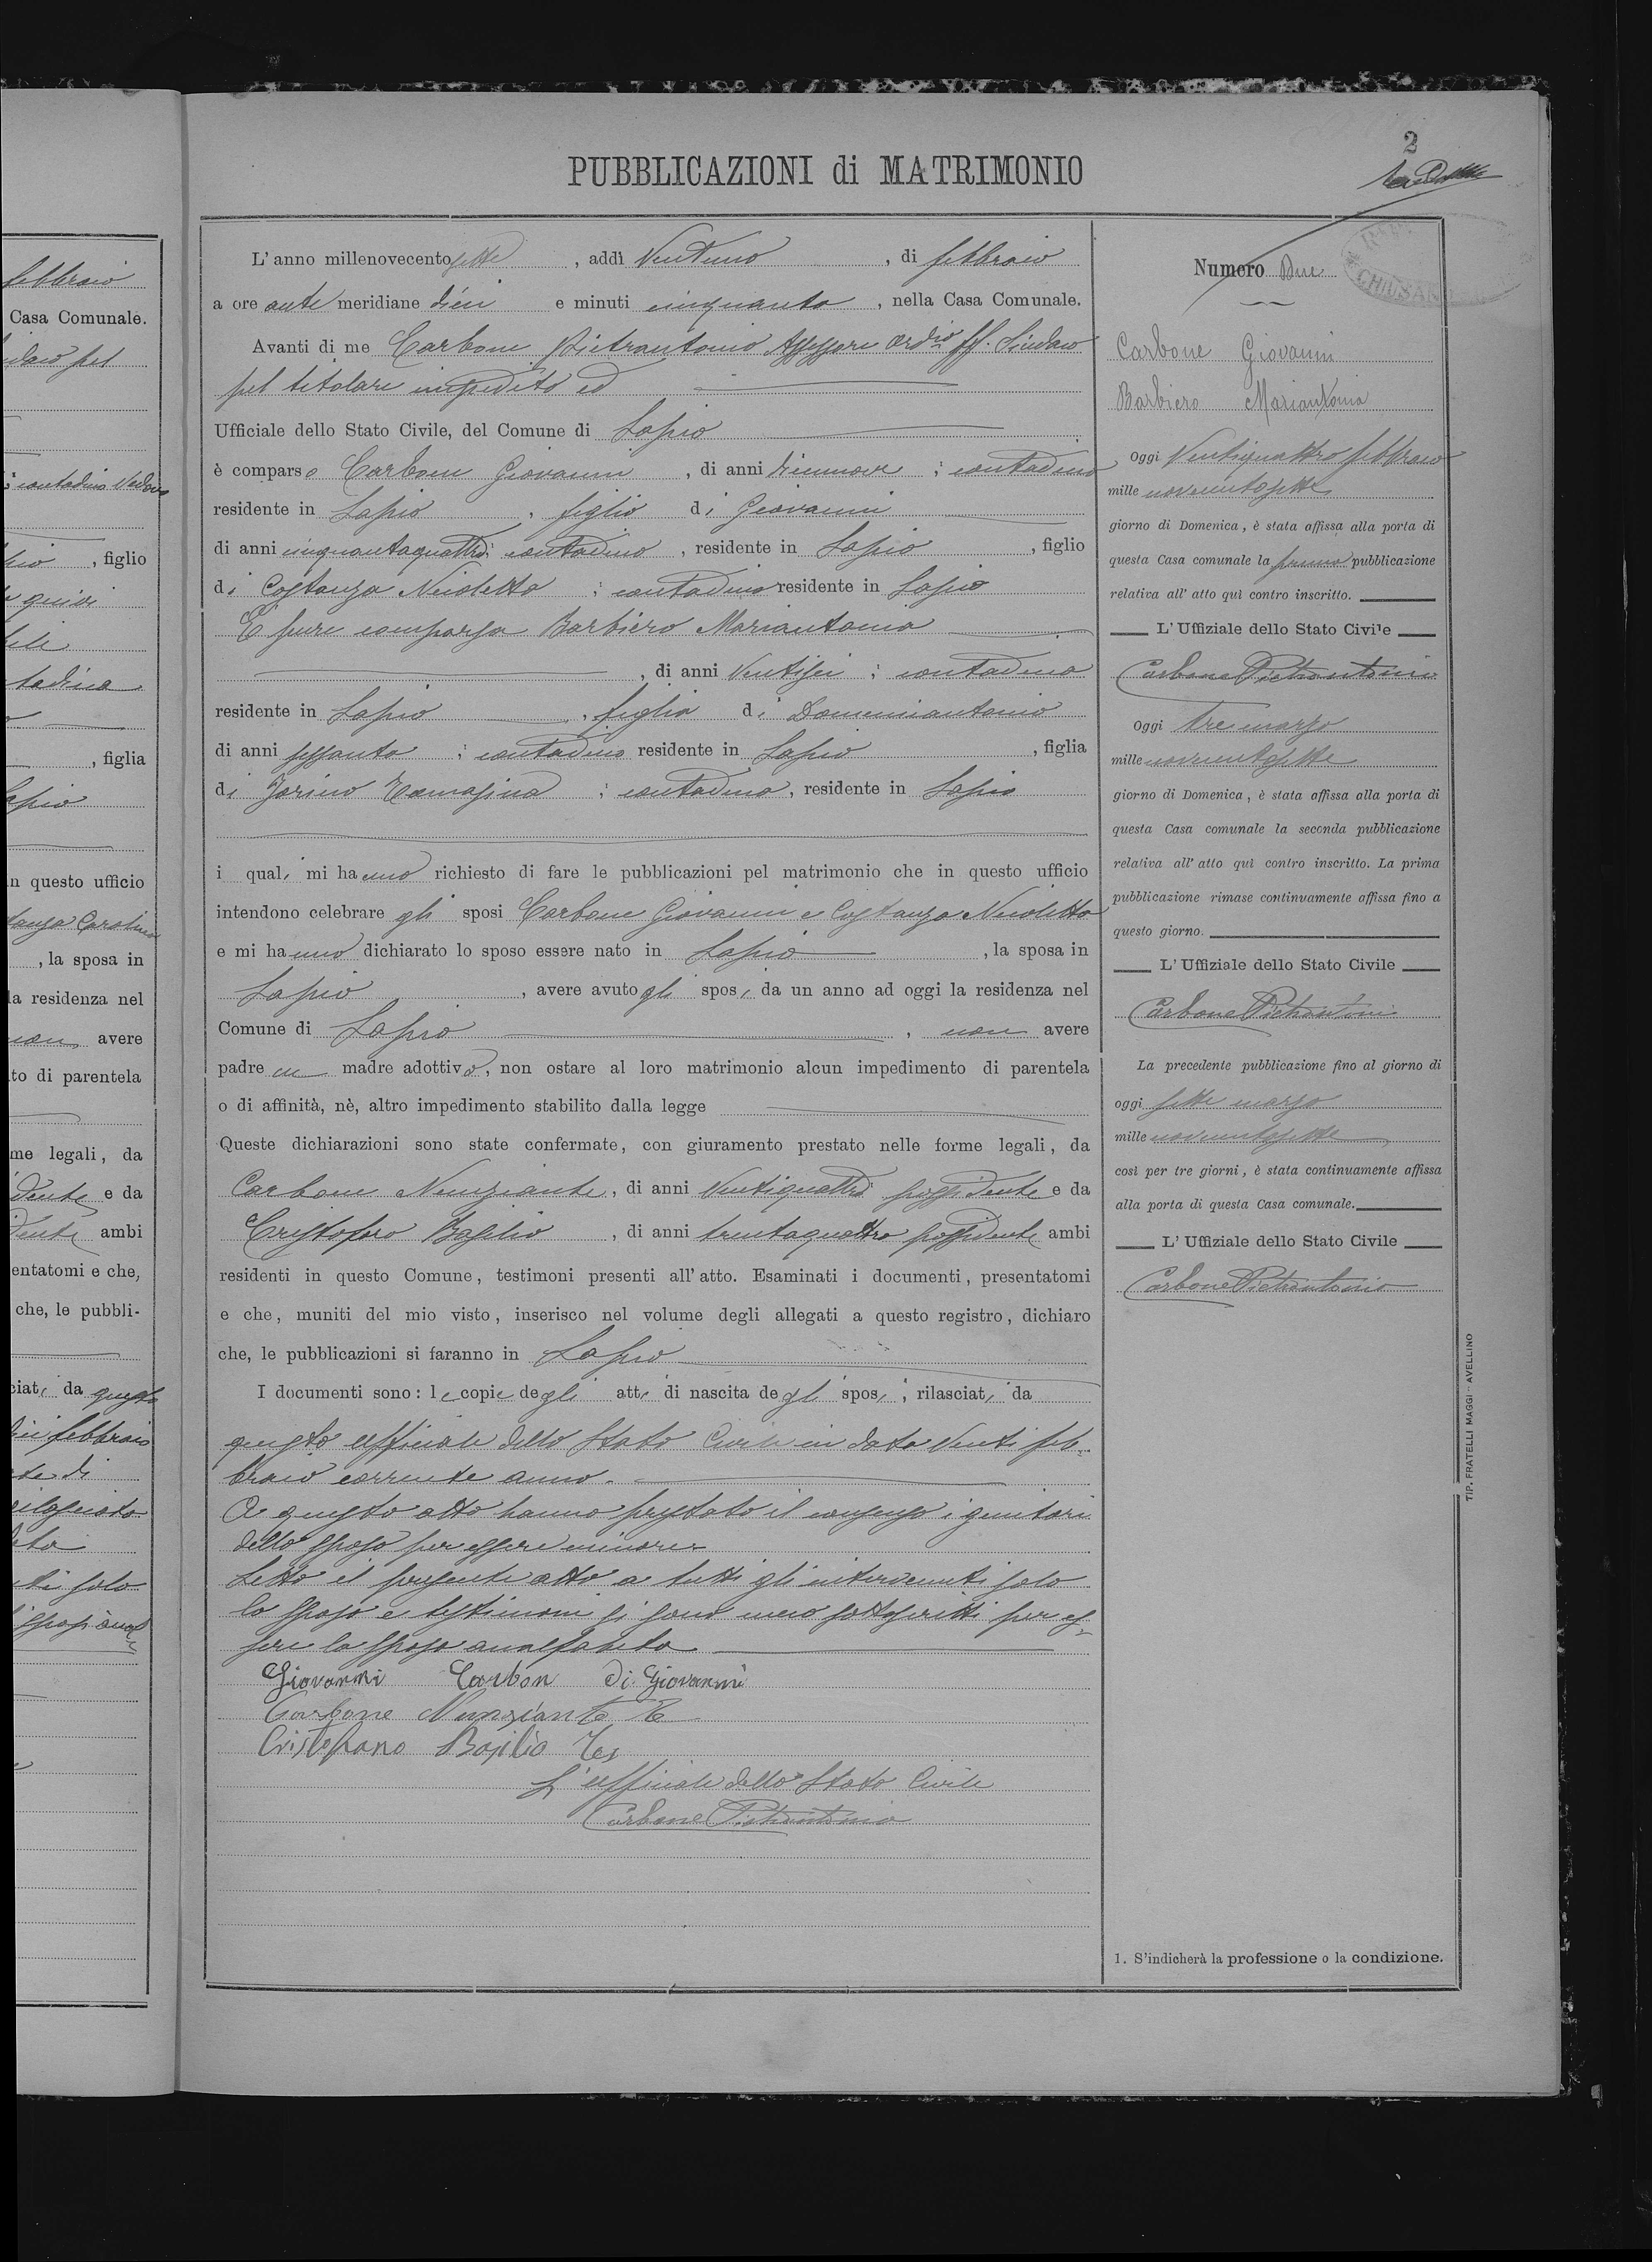 2
PUBBLICAZIONI di MATRIMONIO
L'anno millenovecento sette, addì Ventuno, di febbraio
a ore ante meridiane dieci e minuti cinquanta, nella Casa Comunale.
Avanti di me Carbone Pietrantonio Assessore ord.rio ff. Sindaco
pel titolare impedito ed
Ufficiale dello Stato Civile, del Comune di Lapio
è comparso Carbone Giovanni, di anni diciannove; contadino
residente in Lapio, figlio di Giovanni
di anni cinquantaquattro; contadino, residente in Lapio, figlio
di Costanza Nicoletta; contadina residente in Lapio
È pure comparsa Barbiero Mariantonia
, di anni Ventisei; contadina
residente in Lapio, figlia di Domenicantonio
di anni sessanta; contadino residente in Lapio, figlia
di Jarino Tomasina; contadina, residente in Lapio
i quali mi hanno richiesto di fare le pubblicazioni pel matrimonio che in questo ufficio
intendono celebrare gli sposi Carbone Giovanni e Costanza Nicoletta
e mi hanno dichiarato lo sposo essere nato in Lapio, la sposa in
Lapio, avere avuto gli sposi da un anno ad oggi la residenza nel
Comune di Lapio, non avere
padre e madre adottivo, non ostare al loro matrimonio alcun impedimento di parentela
o di affinità, nè, altro impedimento stabilito dalla legge
Queste dichiarazioni sono state confermate, con giuramento prestato nelle forme legali, da
Carbone Nunziante, di anni Ventiquattro possidente e da
Cristofaro Basilio, di anni trentaquattro possidente ambi
residenti in questo Comune, testimoni presenti all'atto. Esaminati i documenti, presentatomi
e che, muniti del mio visto, inserisco nel volume degli allegati a questo registro, dichiaro
che, le pubblicazioni si faranno in Lapio
I documenti sono: le copie degli atti di nascita degli sposi; rilasciati da
questo Ufficiale dello Stato Civile in data Venti feb-
braio corrente anno.
A questo atto hanno prestato il consenso i genitori
dello sposo per essere minore
Letto il presente atto a tutti gli intervenuti solo
lo sposo e testimoni si sono meco sottoscritti per es-
sere la sposa analfabeta
Giovanni Carbon di Giovanni
Carbone Nunziante Te
Cristofano Basilio Tes
L'Ufficiale dello Stato Civile
Carbone Pietrantonio
Numero Due
CHIUSAN
Carbone Giovanni
Barbiero Mariantonia
Oggi Ventiquattro febbraio
mille novecentosette
giorno di Domenica, è stata affissa alla porta di
questa Casa comunale la prima pubblicazione
relativa all'atto quì contro inscritto.
L'Uffiziale dello Stato Civile
Carbone Pietrantonio
Oggi tre marzo
mille novecentosette
giorno di Domenica, è stata affissa alla porta di
questa Casa comunale la seconda pubblicazione
relativa all'atto quì contro inscritto. La prima
pubblicazione rimase continuamente affissa fino a
questo giorno.
L'Uffiziale dello Stato Civile
Carbone Pietrantonio
La precedente pubblicazione fino al giorno di
oggi sette marzo
mille novecentosette
così per tre giorni, è stata continuamente affissa
alla porta di questa Casa comunale.
L'Uffiziale dello Stato Civile
Carbone Pietrantonio
1. S'indicherà la professione o la condizione.
TIP. FRATELLI MAGGI - AVELLINO
febbraio
Casa Comunale.
contadino Vedovo
, figlio
tadina
, figlia
n questo ufficio
, la sposa in
a residenza nel
non avere
to di parentela
me legali, da
dente e da
dente ambi
entatomi e che,
che, le pubbli-
ciati da questo
febbraio
solo